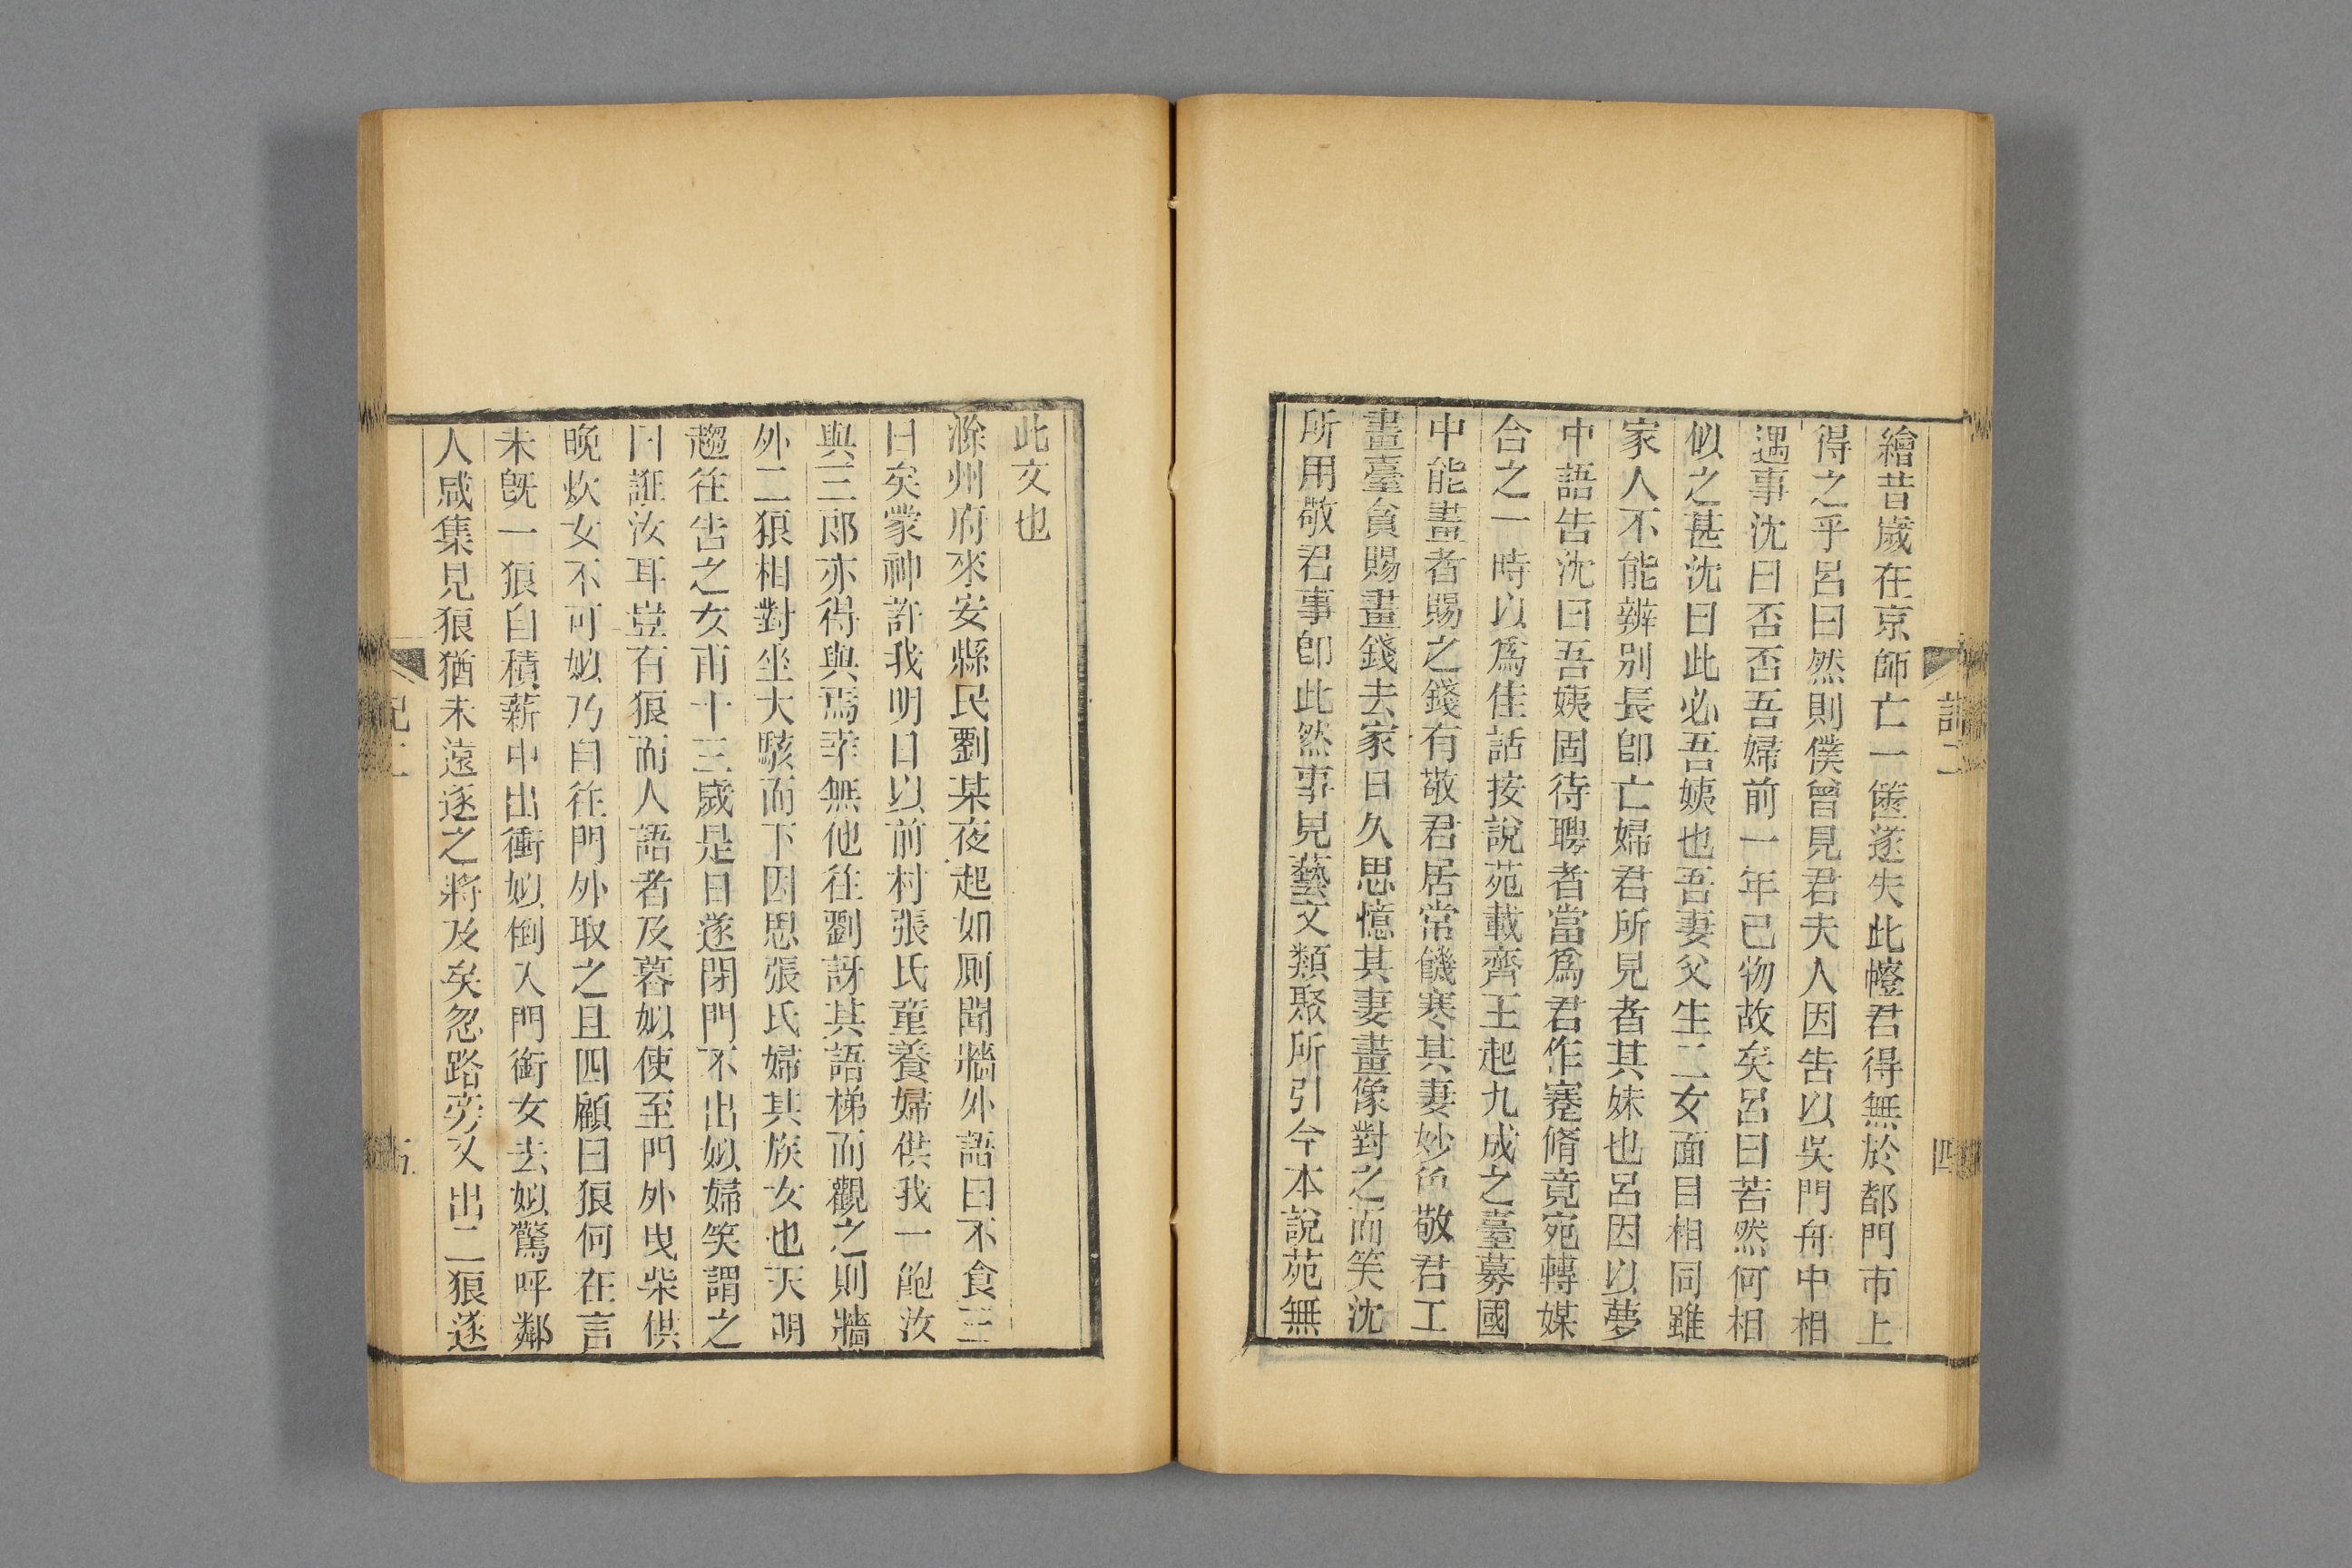 繪昔歲在京師亡一篋遂失此㡧君得無於都門市上
得之乎呂曰然則僕曾見君夫人因告以吳門舟中相
遇事沈曰否否吾婦前一年已物故矣呂曰若然何相
似之甚沈曰此必吾姨也吾妻父生二女面目相同雖
家人不能辨别長卽亡婦君所見者其妹也呂因以夢
中語告沈曰吾姨固待聘者當爲君作蹇脩竟宛轉媒
合之一時以爲佳話按說苑載齊王起九成之臺募國
中能畫者賜之錢有敬君居常饑寒其妻妙色敬君工
畫臺貪賜畫錢去家日久思憶其妻畫像對之而笑沈
所用敬君事卽此然事見藝文類聚所引今本說苑無
四
此文也
滁州府來安縣民劉某夜起如厠聞牆外語曰不食三
日矣蒙神許我明日以前村張氏童養婦供我一飽汝
與三郎亦得與焉幸無他往劉訝其語梯而觀之則牆
外二狼相對坐大駭而下因思張氏婦其族女也天明
趨往告之女甫十三歲是日遂閉門不出姒婦笑謂之
曰誑汝耳豈有狼而人語者及暮姒使至門外曳柴供
晚炊女不可姒乃自往門外取之且四顧曰狼何在言
未旣一狼自積薪中出衝姒倒入門銜女去姒驚呼鄰
人咸集見狼猶未遠逐之將及矣忽路旁又出二狼遂
五